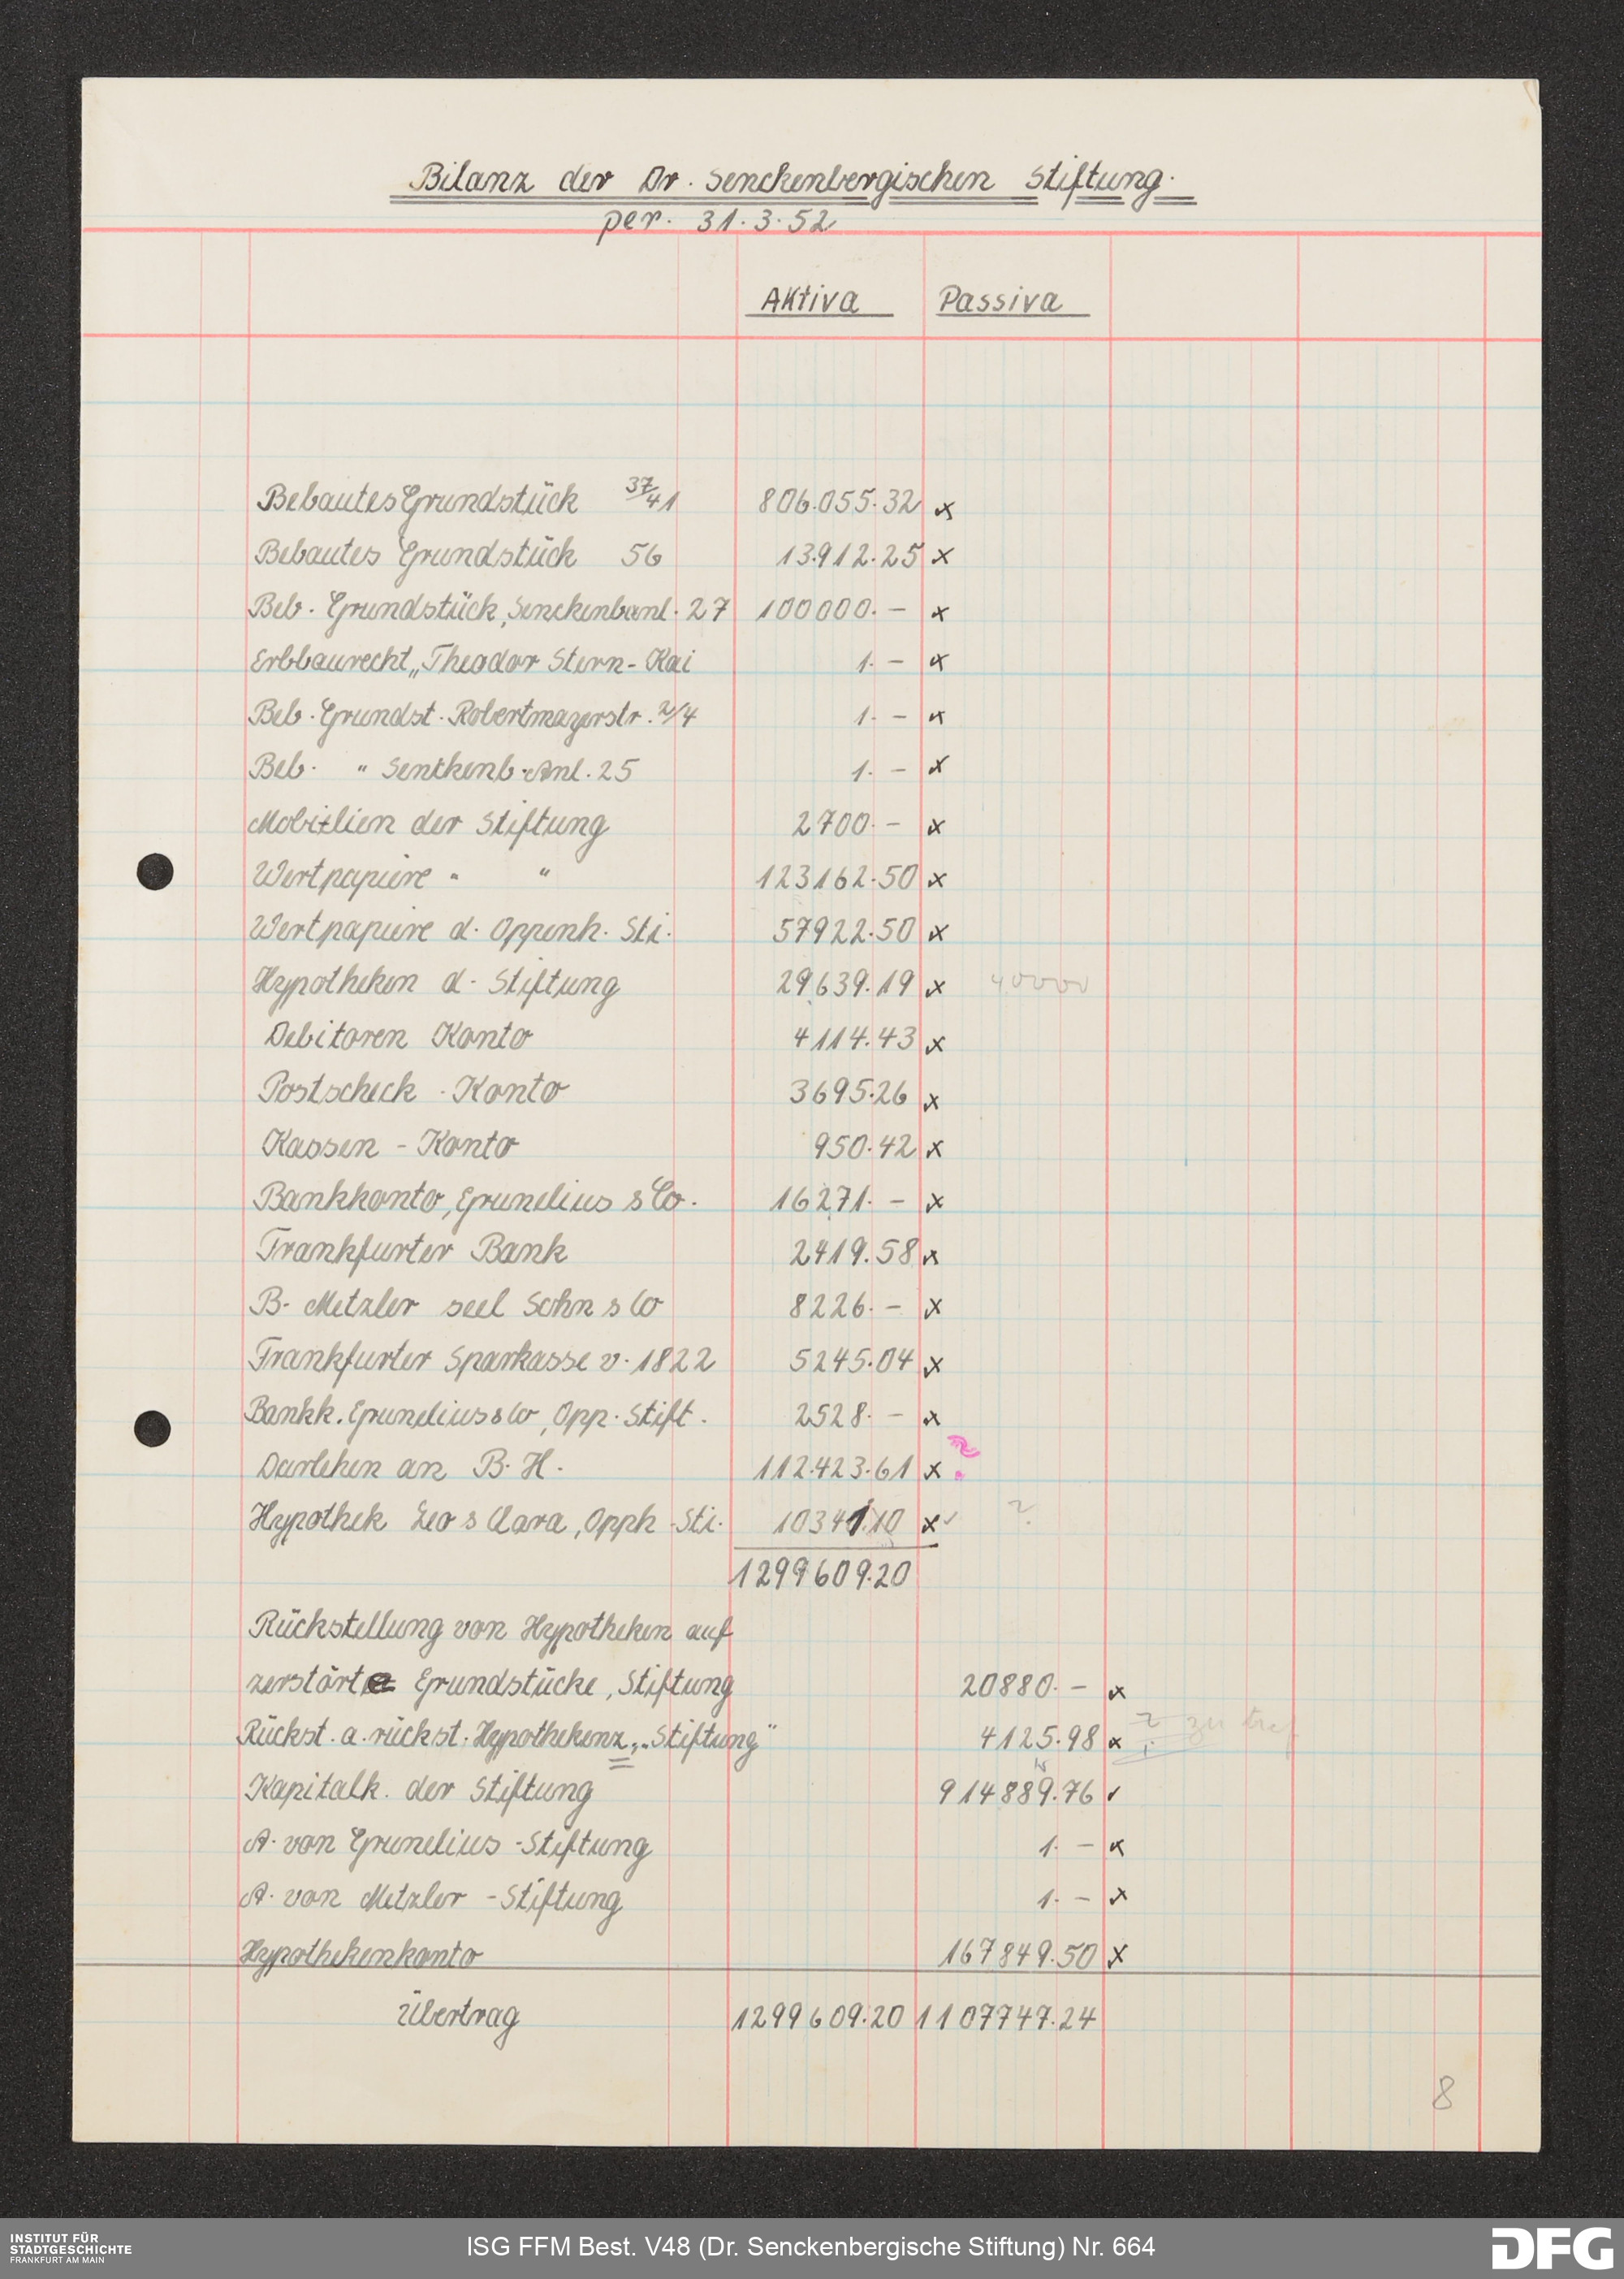 Bilanz der Dr. Senckenbergischen Stiftung.
per. 31.3.52
Aktiva Passiva
Bebautes Grundstück 37/41 806.055.32 x
Bebautes Grundstück 56 13.912.25 x
Beb. Grundstück, Senckenbanl. 27 100000.- x
Erbbaurecht „Theodor Stern-Kai 1.- x
Beb. Grundst. Robertmayerstr. 2/4 1.- x
Beb. " Senckenb. Anl. 25 1.- x
Mobilien der Stiftung 2700.- x
Wertpapiere " " 123162.50 x
Wertpapiere d. Oppenh. Sti. 57922.50 x
Hypotheken d. Stiftung 29639.19 x 40000
Debitoren Konto 4114.43 x
Postscheck-Konto 3695.26 x
Kassen-Konto 950.42 x
Bankkonto, Grunelius & Co. 16271.- x
Frankfurter Bank 2419.58 x
B. Metzler seel Sohn & Co 8226.- x
Frankfurter Sparkasse v. 1822 5245.04 x
Bankk. Grunelius & Co, Opp. Stift. 2528.- x
Darlehen an B.H. 112.423.61 x ?
Hypothek Leo & Clara, Opph-Sti. 10341.10 x ✓ ?
1299609.20
Rückstellung von Hypotheken auf
zerstörte Grundstücke, Stiftung 20880.- x
Rückst. a. rückst. Hypothekenz. „Stiftung" 4125.98 x
Kapitalk. der Stiftung 914889.76 ✓
A. von Grunelius-Stiftung 1.- x
A. von Metzler-Stiftung 1.- x
Hypothekenkonto 167849.50 x
Übertrag 1299609.20 1107747.24
8
INSTITUT FÜR
STADTGESCHICHTE
FRANKFURT AM MAIN
ISG FFM Best. V48 (Dr. Senckenbergische Stiftung) Nr. 664
DFG